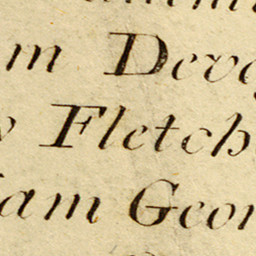 m Deve
Fletch
iam Geor